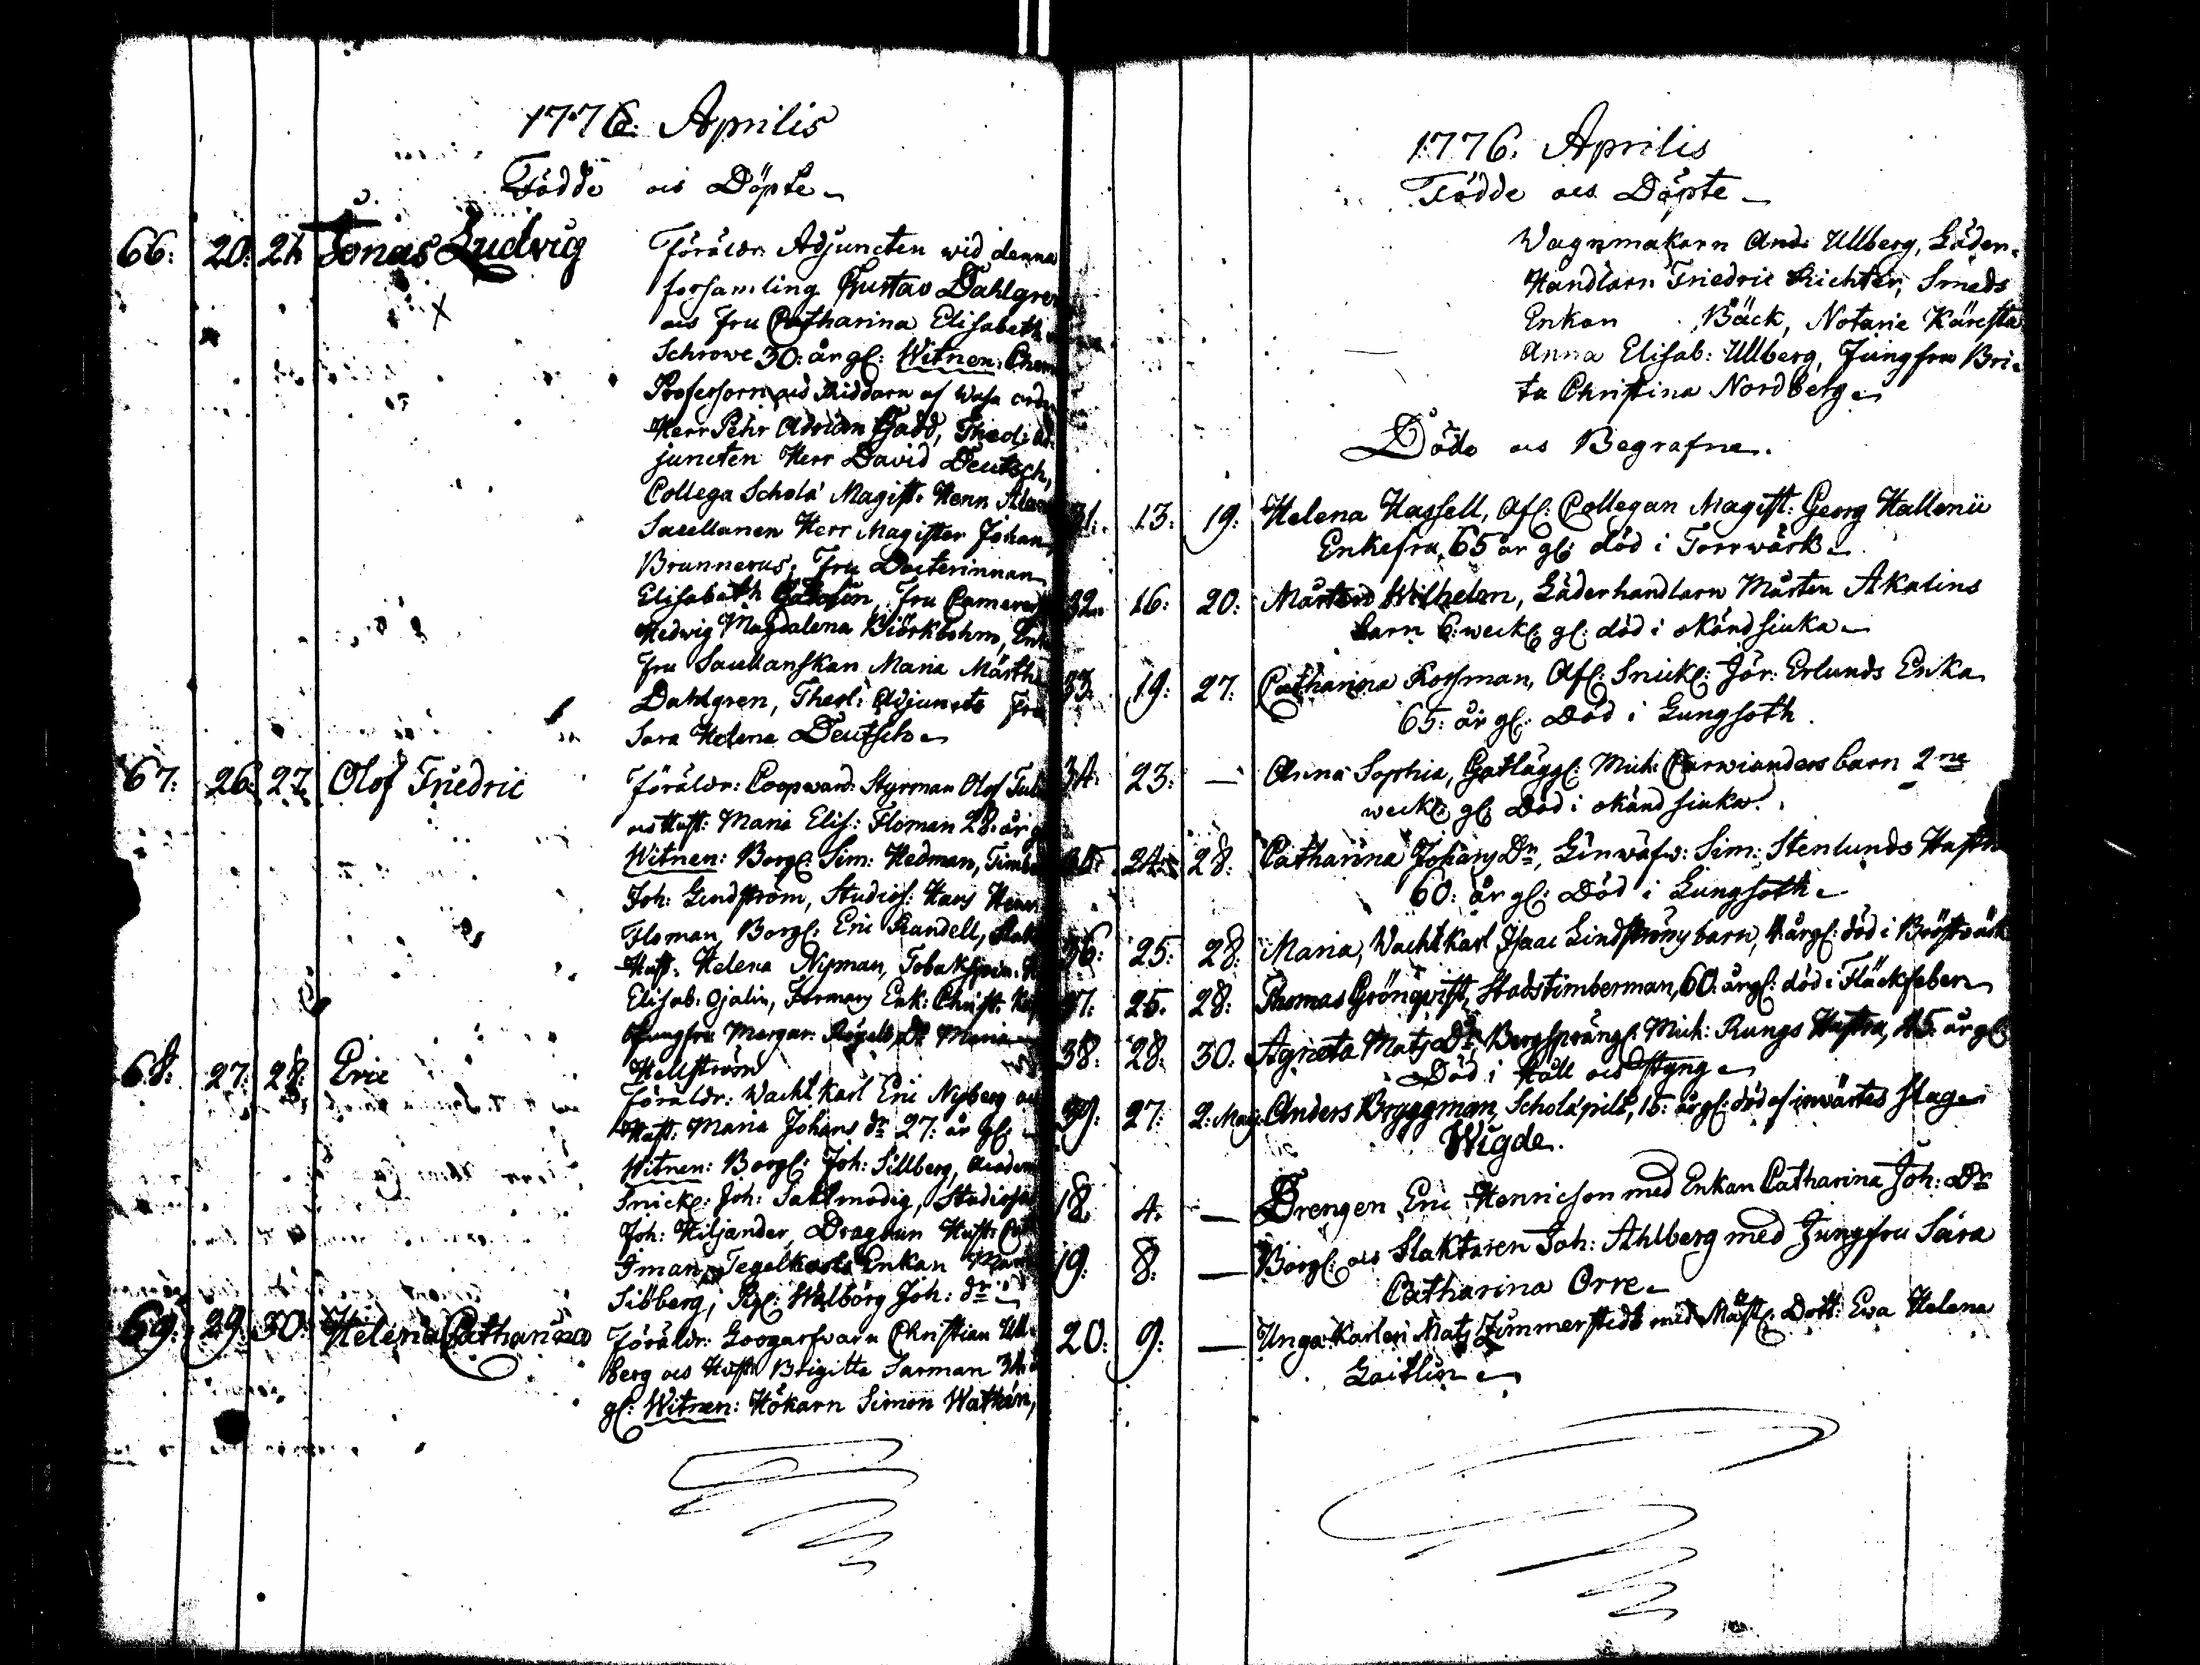 1776. Aprilis
Födde och Döpte
66: 20: 21 Jonas Ludvig Föräldr: Adjuncten wid denna
forsamling Gustav Dahlgren
och fru Catharina Elisabeth
Schrowe 30: år gl: Witnen: Chem
Professorn och Riddarn af Wasa orden
Herr Pehr Adrian Gadd, Theol: Ad
juncten Herr David Deutsch,
Collega Scholæ Magist: Henr
Sacellanen Herr Magister Johan
Brunnerus, Fru Docterinnan
Elisabeth Fru Camerer
Hedwig Magdalena Biörkbohm, Enk
fru Sacellanskan Maria Märtha
Dahlgren, Theol: Adjuncts Fru
Sara Helena Deutsch
67: 26: 27 Olof Friedric Föräldr: Coopward: Styrman Olof
och Hust: Maria Elis: Floman 28: år g
Witnen: Borgl: Sim: Hedman, Timb
Joh: Lindström, Studios: Hans Henr
Floman, Borgl: Eric Randell,
Hust: Helena Nyman, Tobakspin:
Elisab: Ojalin, Enk: Christ:
Jungfru Margar: Dr Maria
Hellström
68: 27: 28: Eric Föräldr: Wacht Karl Eric Nyberg och
Hust: Maria Johans dr 27: år gl:
Witnen: Borgl: Joh: Sillberg, Academ
Snick: Joh: Saktmodig, Studios
Joh: Hiljander, Dragoun Hust:
Iman, Tegelkarls Enkan
Sibberg, Pigl: Walborg Joh: dr
69: 29: 30: Helena Catharina Föräldr: Christian Ull
berg och Hust: Brigitta Sarman 34:
gl: Witnen: Hökarn Simon Wathén,
1776. Aprilis
Födde och Döpte
Wagnmakarn And: Ullberg, Läder
Handlarn Friedric Richter, Smeds
Enkan Bäck, Notarie Käresta
Anna Elisab: Ullberg, Jungfru Bri
ta Christina Nordberg
Döde och Begrafne.
31: 13: 19: Helena Hassell, Afl: Collegan Magist: Georg Hallenii
Enkefru, 65 år gl: död i Torrwärk
32: 16: 20: Mårten Wilhelm, Läderhandlarn Mårten Akalins
barn 6: weck: gl: död i okänd siuka
33: 19: 27: Catharina Rosman, Afl: Snick: Jör: Erlunds Enka
65: år gl: Död i Lungsoth.
34: 23: — Anna Sophia, Gatlägg: Mich: Carwianders barn 2ne
weck: gl: Död i okänd siuka.
35: 24: 28: Catharina Johans Dr, Linwäfw: Sim: Stenlunds Hustru
60: år gl: Död i Lungsoth
36: 25: 28: Maria, Wacht Karl Isaac Lindströms barn, 4 år gl: död i Bröstwärk
37: 25: 28: Thomas Grönqvist, Stadstimberman, 60: år gl: död i Fläckfeber
38: 28: 30: Agneta Mats Dr Bergspräng: Mich: Rungs Hustru, 45 år gl:
Död i Håll och Styng
39: 27: 2: Maij Anders Bryggman, Scholæ pilt, 15: år gl: död af inwärtes slag
Wigde.
18: 4: — Drengen Eric Henricson med Enkan Catharina Joh: Dr
19: 8: — Borgl: och Slaktaren Joh: Ahlberg med Jungfru Sara
Catharina Orre
20: 9: — Unga Karlen Mats Zimmerstedt med Mäst: Dott: Eva Helena
Gaitlin